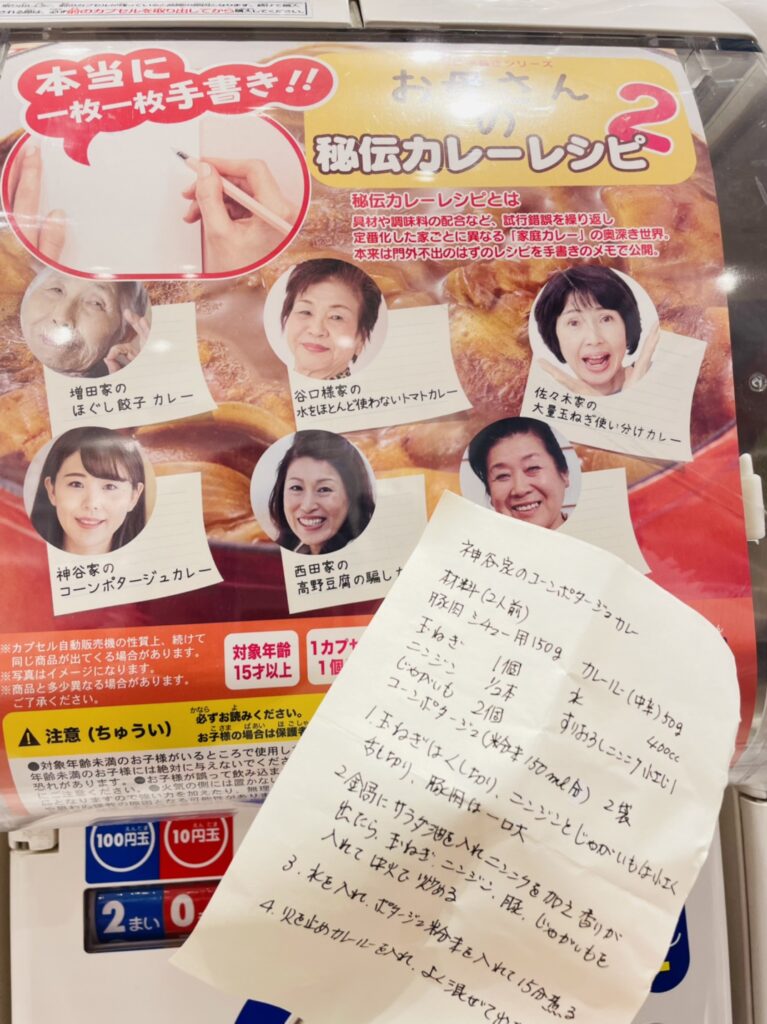 される際は、必ず前のカプセルを取り出してから購入してください。
本当に
一枚一枚手書き!!
シリーズ
お母さん
の
秘伝カレーレシピ2
秘伝カレーレシピとは
具材や調味料の配合など、試行錯誤を繰り返し
定番化した家ごとに異なる「家庭カレー」の奥深き世界。
本来は門外不出のはずのレシピを手書きのメモで公開。
増田家の
ほぐし餃子 カレー
谷口様家の
水をほとんど使わないトマトカレー
佐々木家の
大量玉ねぎ使い分けカレー
神谷家の
コーンポタージュカレー
西田家の
高野豆腐の騙し
※カプセル自動販売機の性質上、続けて
同じ商品が出てくる場合があります。
※写真はイメージになります。
※商品と多少異なる場合があります。
ご了承ください。
対象年齢
15才以上
1カプセ
1個
注意(ちゅうい)
必ずお読みください。
お子様の場合は保護者
●対象年齢未満のお子様がいるところで使用し
年齢未満のお子様には絶対に与えないでくだ
恐れがあります。●お子様が誤って飲み込ま
い。●火気の側には置かない
100円玉
10円玉
2まい
0
神谷家のコーンポタージュカレー
材料(2人前)
豚肉 シチュー用150g カレールー(中辛)50g
玉ねぎ 1個 水 400cc
ニンジン 1/2本 すりおろしニンニク 小さじ1
じゃがいも 2個
コーンポタージュ(粉末150ml分) 2袋
1. 玉ねぎはくし切り、ニンジンとじゃがいもは小さく
乱切り、豚肉は一口大
2. 鍋にサラダ油を入れニンニクを加え香りが
出たら、玉ねぎ、ニンジン、豚、じゃがいもを
入れて中火で炒める
3. 水を入れ、ポタージュ粉末を入れて15分煮る
4. 火を止めカレールーを入れ、よく混ぜて